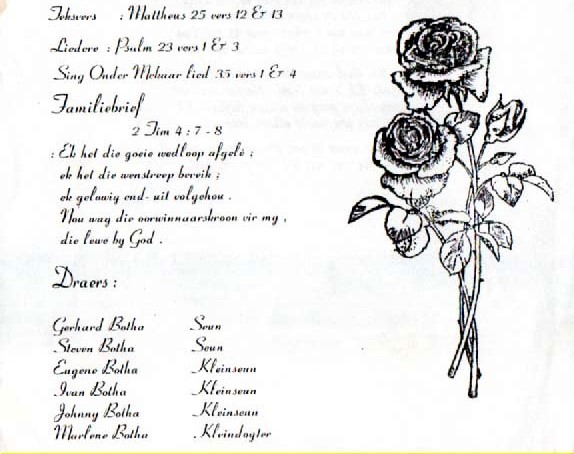 Teksvers : Mattheus 25 vers 12 & 13
Liedere : Psalm 23 vers 1 & 3
Sing Onder Mekaar lied 35 vers 1 & 4
Familiebrief
2 Tim 4 : 7 - 8
: Ek het die goeie wedloop afgelê ;
ek het die wenstreep bereik ;
ek gelowig end - uit volgehou .
Nou wag die oorwinnaarskroon vir my ,
die lewe by God .
Draers :
Gerhard Botha Seun
Steven Botha Seun
Eugene Botha Kleinseun
Ivan Botha Kleinseun
Johnny Botha Kleinseun
Marlene Botha Kleindogter